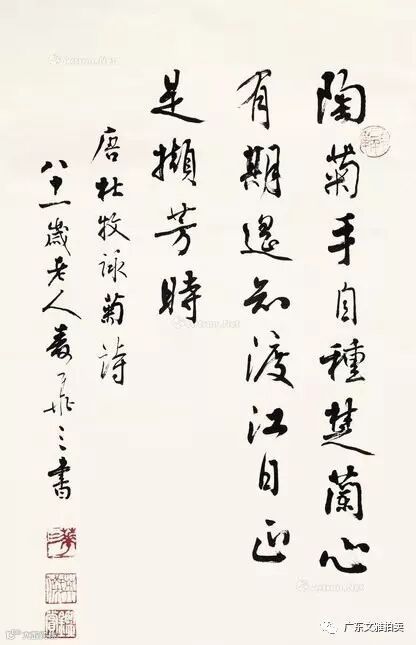 陶菊手自種楚蘭心
有期遙知渡江日正
是擷芳時
唐杜牧詠菊詩
八十一歲老人麦華三書
广东文雅拍卖